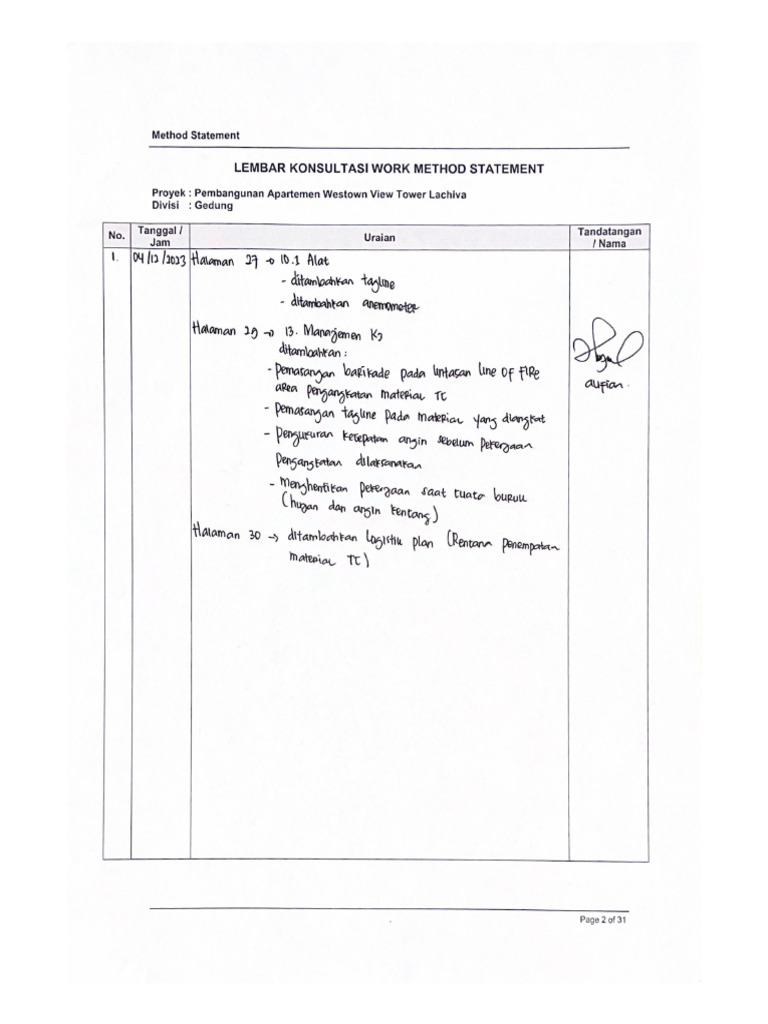 Method Statement
LEMBAR KONSULTASI WORK METHOD STATEMENT
Proyek : Pembangunan Apartemen Westown View Tower Lachiva
Divisi : Gedung
No.
Tanggal / Jam
Uraian
Tandatangan / Nama
1. 04/12/2023 Halaman 27 → 10.1 Alat
- ditambahkan tagline
- ditambahkan anemometer
Halaman 29 → 13. Manajemen K3
ditambahkan :
- Pemasangan barikade pada lintasan line OF FIRE
area pengangkatan material TC
- Pemasangan tagline pada material yang diangkat
- Pengukuran kecepatan angin sebelum pekerjaan
pengangkatan dilaksanakan
- Menghentikan pekerjaan saat cuaca buruk
(hujan dan angin kencang)
Halaman 30 → ditambahkan Logistik plan (Rencana penempatan
material TC)
Page 2 of 31